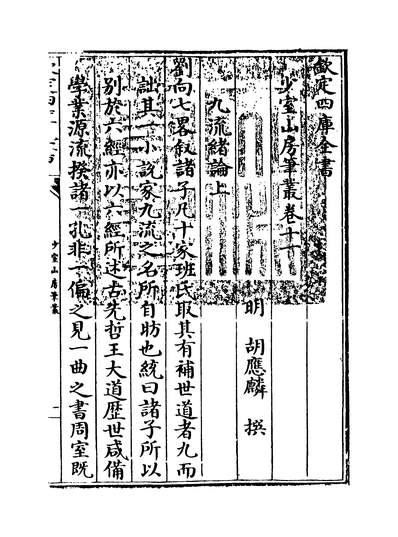 欽定四庫全書
少室山房筆叢卷十一
明 胡應麟 撰
九流緒論上
劉向七畧叙諸子凡十家班氏取其有補世道者九而
詘其一小說家九流之名所自昉也統曰諸子所以
别於六經亦以六經所述古先哲王大道歴世咸備
學業源流揆諸一孔非一偏之見一曲之書周室既
少室山房筆叢